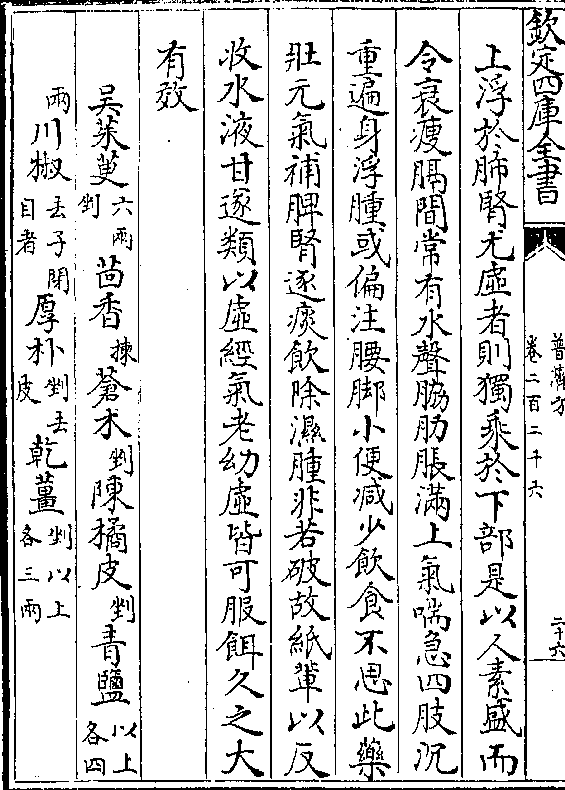 欽定四庫全書
普濟方
卷二百二十六
二十六
上浮於肺腎尤虛者則獨乘於下部是以人素盛而
今衰瘦膈間常有水聲脇肋脹滿上氣喘急四肢沉
重遍身浮腫或偏注腰脚小便减少飲食不思此藥
壯元氣補脾腎逐痰飲除濕腫非若破故紙輩以反
收水液甘遂類以虛經氣老幼虛皆可服餌久之大
有效
吳茱萸六兩剉茴香揀蒼术剉陳橘皮剉青鹽以上各四
兩川椒去子閉目者厚朴剉去皮乾薑剉以上各三兩